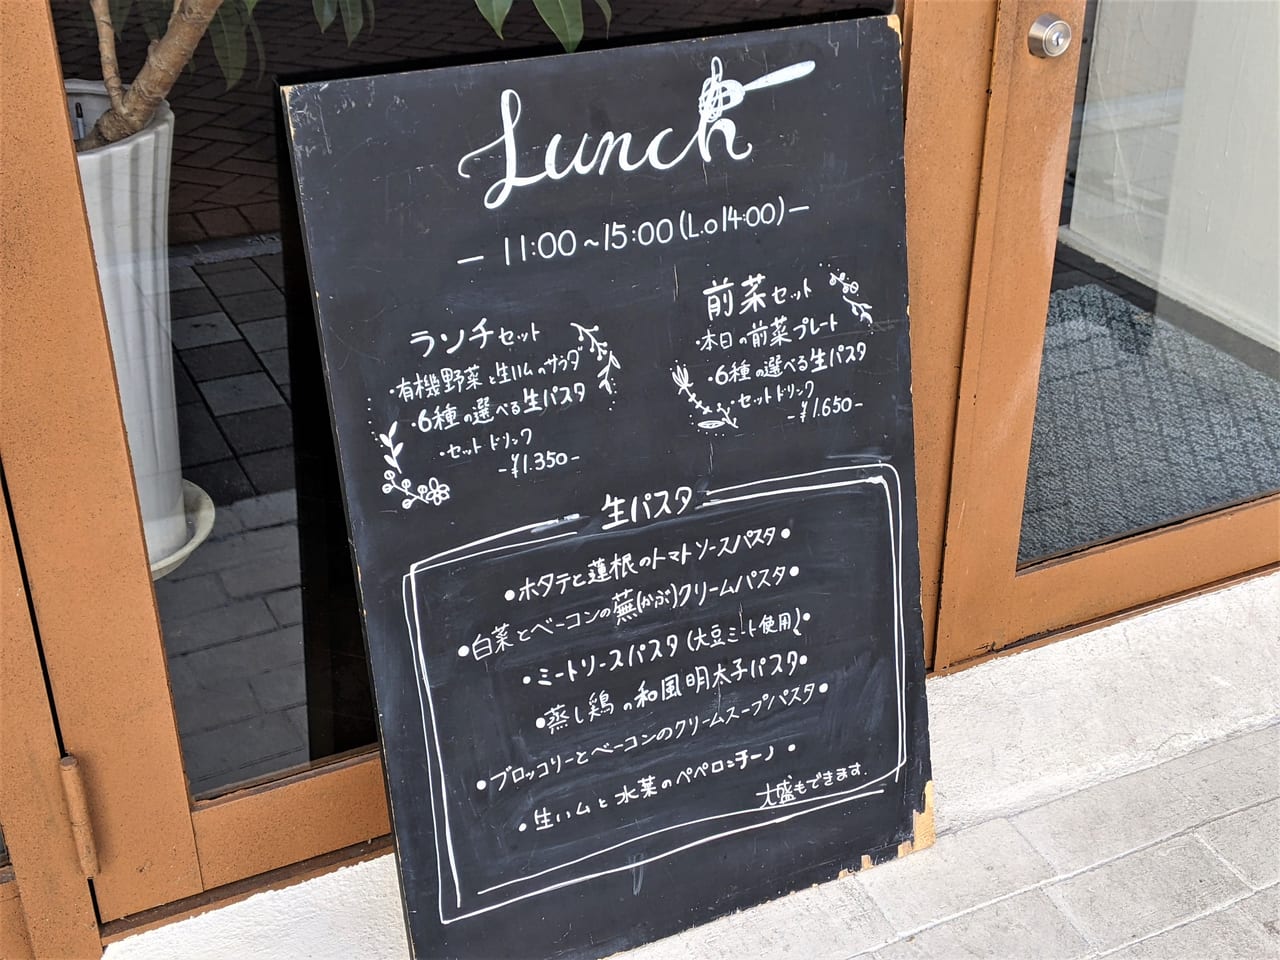 Lunch
— 11:00 ~ 15:00 (L.o 14:00) —
ランチセット
・有機野菜と生ハムのサラダ
・6種の選べる生パスタ
・セットドリンク
-¥1.350-
前菜セット
・本日の前菜プレート
・6種の選べる生パスタ
・セットドリンク
-¥1.650-
生パスタ
●ホタテと蓮根のトマトソースパスタ●
●白菜とベーコンの蕪(かぶ)クリームパスタ●
●ミートソースパスタ(大豆ミート使用)●
●蒸し鶏の和風明太子パスタ●
●ブロッコリーとベーコンのクリームスープパスタ●
●生ハムと水菜のペペロンチーノ●
大盛もできます.